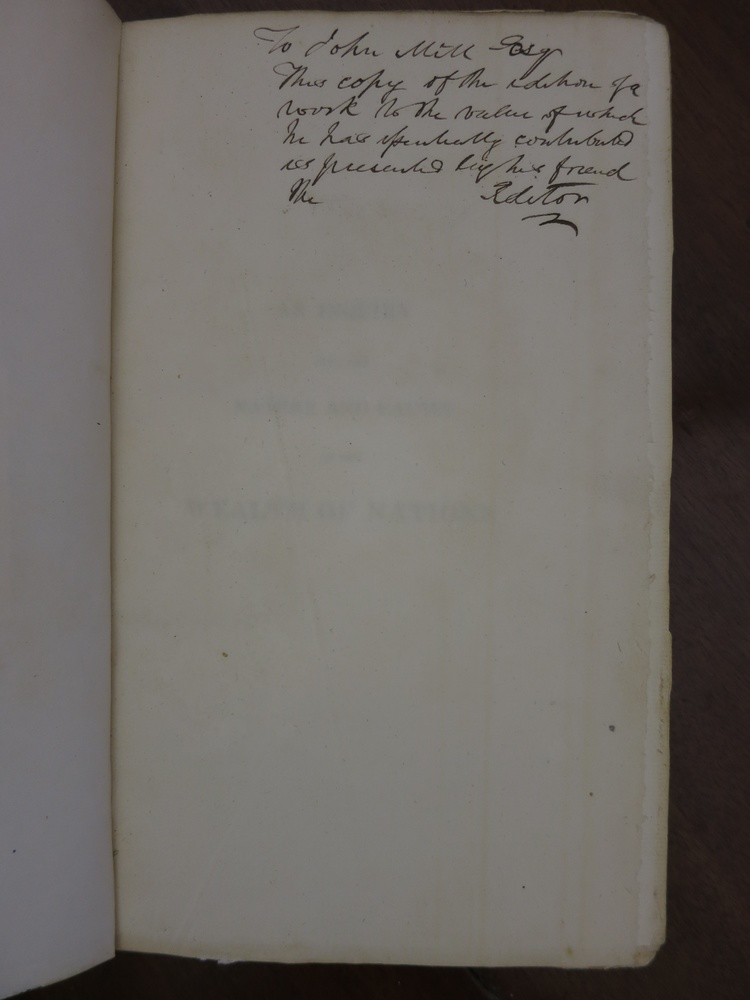 To John Mill Esq
This copy of the edition of a
work to the value of which
he has essentially contributed
is presented by his friend
The Editor
AN INQUIRY
NATURE AND CAUSES
WEALTH OF NATIONS